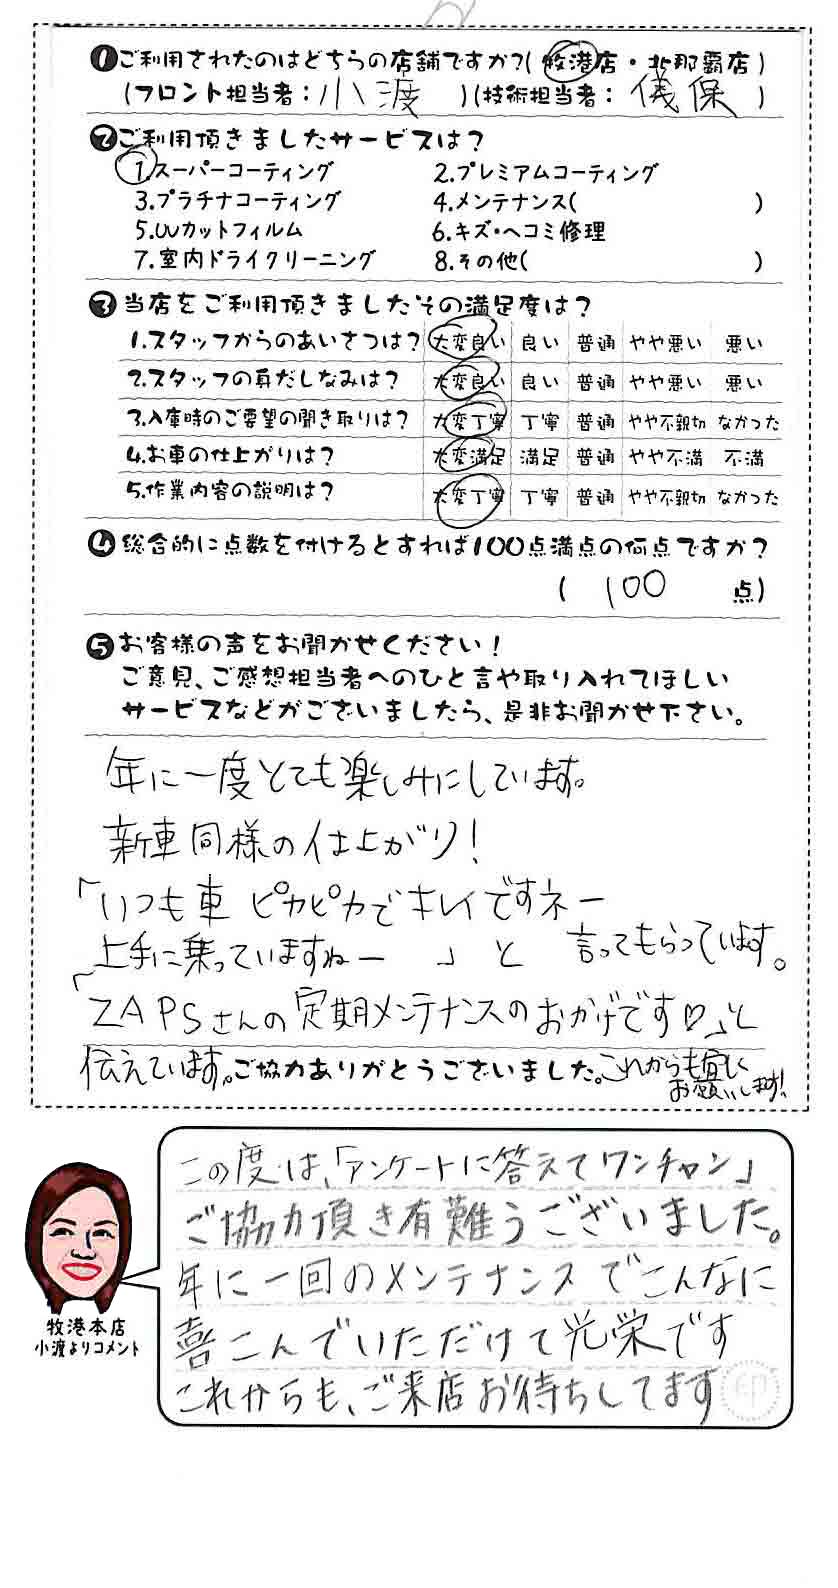 ❶ご利用されたのはどちらの店舗ですか?(牧港店・北那覇店)
(フロント担当者:小渡)(技術担当者:儀保)
❷ご利用頂きましたサービスは?
1.スーパーコーティング 2.プレミアムコーティング
3.プラチナコーティング 4.メンテナンス( )
5.UVカットフィルム 6.キズ・ヘコミ修理
7.室内ドライクリーニング 8.その他( )
❸当店をご利用頂きましたその満足度は?
1.スタッフからのあいさつは? 大変良い 良い 普通 やや悪い 悪い
2.スタッフの身だしなみは? 大変良い 良い 普通 やや悪い 悪い
3.入庫時のご要望の聞き取りは? 大変丁寧 丁寧 普通 やや不親切 なかった
4.お車の仕上がりは? 大変満足 満足 普通 やや不満 不満
5.作業内容の説明は? 大変丁寧 丁寧 普通 やや不親切 なかった
❹総合的に点数を付けるとすれば100点満点の何点ですか?
(100点)
❺お客様の声をお聞かせください!
ご意見、ご感想担当者へのひと言や取り入れてほしい
サービスなどがございましたら、是非お聞かせ下さい。
年に一度とても楽しみにしています。
新車同様の仕上がり!
「いつも車 ピカピカでキレイですネー
上手に乗っていますねー 」と 言ってもらっています。
「ZAPSさんの定期メンテナンスのおかげです♡」と
伝えています。ご協力ありがとうございました。これからも宜しく
お願いします!
この度は、「アンケートに答えてワンチャン」
ご協力頂き有難うございました。
年に一回のメンテナンスでこんなに
喜こんでいただけて光栄です
これからも、ご来店お待ちしてます
印
牧港本店
小渡よりコメント